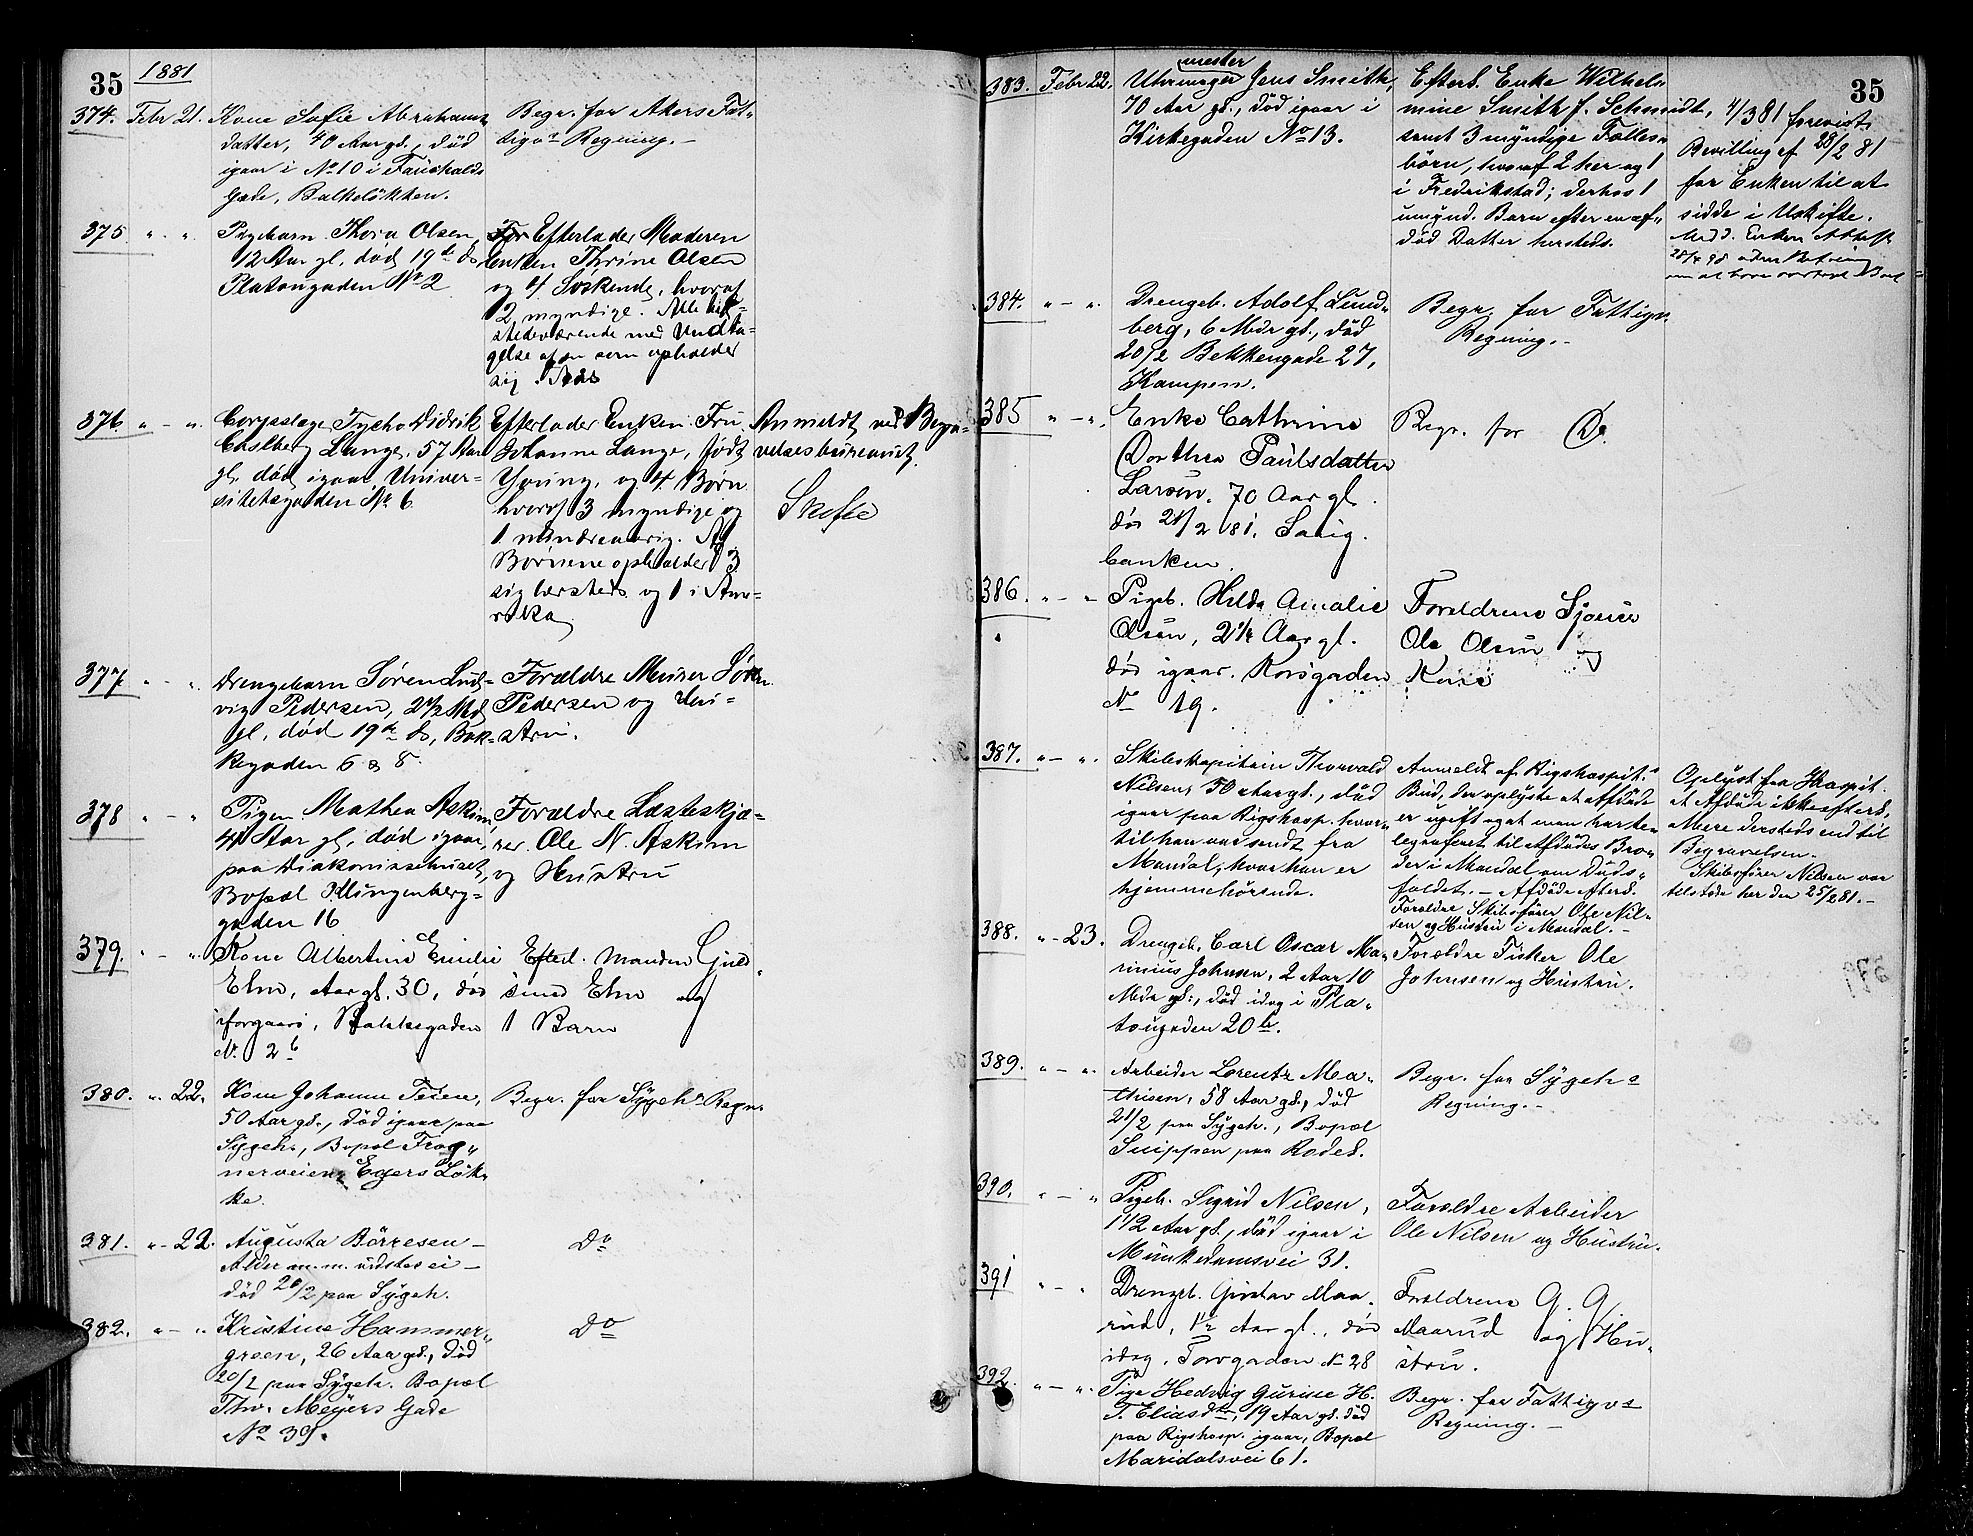 35
1881
374. Febr 21. Kone Sofie Abrahams
datter, 40 Aar gl., död
igaar i No 10 i Faüchalds
Gade, Balkelökken.
Begr. for Akers Fat-
tigvs Regning. -
375. " " Pigebarn Thora Olsen
12 Aar gl. død 19de ds
Platougaden No 2
Efterlader Moderen
enken Thrine Olsen
og 4 Søskende, hvoraf
2 myndige. Alle her-
stedeværende med Undta-
gelse af en som opholder
sig i
376. " - " Corpslæge Tycho Didrik
Castberg Lange, 57 Aar
gl. død igaar, Univer-
sitetsgaden No 6
Efterlader Enken Fru
Johanne Lange, født
Young, og 4 Børn
hvoraf 3 myndige og
1 mindreaarig. Af
Børnene opholder 3
sig hersteds og 1 i Ame-
rika
Anmeldt ved Begra-
velsesbureauet.
Skifte
377. " - " Drengebarn Søren Lud-
vig Pedersen, 2 1/2 Md
gl. død 19de ds, Bak-
kegaden 6 & 8.
Forældre Murer Søren
Pedersen og Hu-
stru.
378 " - " Pigen Mathea Askim
41 Aar gl. død igaar
paa Diakonissehuset,
Bopæl Klingenberg-
gaden 16
Forældre Læsteskjæ-
rer Ole N. Askim
og Hustru
379. " - " Kone Albertine Emilie
Elm, Aar gl. 30, død
iforgaars, Bakkegaden
No. 2b
Efterl. Manden Guld-
smed Elm og
1 Barn
380. " 22. Kone Johanne Teien,
50 Aar gl., död igaar paa
Sÿgeh., Bopæl Frog-
nerveien, Egers Løk-
ke.
Begr. for Sÿgehs Regn.
381. " - 22. Augusta Börresen -
Alder m.m. vidstes ei -
död 20/2 paa Sÿgeh.
Do
382. " - " Kristine Hammer-
green, 26 Aar gl., död
20/2 paa Sÿgeh. Bopæl
Thv. Meyers Gade
No 39.
Do
35
383. Febr 22. Uhrmager mester Jens Smith,
70 Aar gl., död igaar i
Kirkegaden No 13.
Efterl. Enke Wilhel-
mine Smith f. Schmidt,
samt 3 myndige Fælles-
börn, hvoraf 2 her og 1
i Fredrikstad; derhos 1
umÿnd. Barn efter en af-
död Datter hersteds.
4/3 81 forevist
Bevilling af 28/2 81
for Enken til at
sidde i Uskifte.
384. " - " Drengeb. Adolf Lund-
berg, 6 Mdr gl., död
20/2 Bekkengade 27,
Kampen.
Begr. for Fattigv.
Regning. -
385 " - " Enke Cathrine
Dorthea Paulsdatter
Larsen, 70 Aar gl
død 21/2 81,
banken.
Begr. for Do
386. " - " Pigeb. Hilda Amalie
Olsen, 2 1/2 Aar gl.
død igaar. Korsgaden
No 19.
Forældrene
Ole Olsen og
387. " - " Skibskapitain Thorvald
Nilsen, 50 Aar gl., död
igaar paa Rigshosp. hvor-
til han var sendt fra
Mandal, hvor han er
hjemmehörende.
Anmeldt af Rigshospit.s
Bud, der oplÿste at Afdöde
er ugift og at man har te-
legraferet til Afdödes Bro-
der i Mandal om Döds-
faldet. - Afdöde efterl.
Forældre Skibsförer Ole Nil-
sen og Hustru i Mandal. -
Oplÿst fra Hospit.
at Afdöde ikke efterl.
Mere dersteds end til
Begravelsen. -
Skibsförer Nilsen var
tilstede her den 25/2 81. -
388. " - 23. Drengeb. Carl Oscar Ma-
rinius Johnsen, 2 Aar 10
Mdr gl., död idag i Pla-
tougaden 20b.
Forældre Fisker Ole
Johnsen og Hustru.
389. " - " Arbeider Lorentz Ma-
thisen, 58 Aar gl., död
21/2 paa Sÿgeh., Bopæl
Snippen paa Rodel.
Begr. for Sÿgehs
Regning. -
390. " - " Pigeb. Sigrid Nilsen,
1 1/2 Aar gl., död igaar i
Munkedamsvei 31.
Forældre Arbeider
Ole Nilsen og Hustru.
391 " - " Drengeb. Gustav Maa-
rud, 1 1/2 Aar gl., død
idag, Torvgaden No 28
Forældrene G. G.
Maarud og Hu-
stru.
392. " - " Pige Hedvig Gurine H.
T. Eliasdtr, 19 Aar gl. död
paa Rigshosp. igaar, Bopæl
Maridalsvei 61.
Begr. for Fattigvs
Regning. -